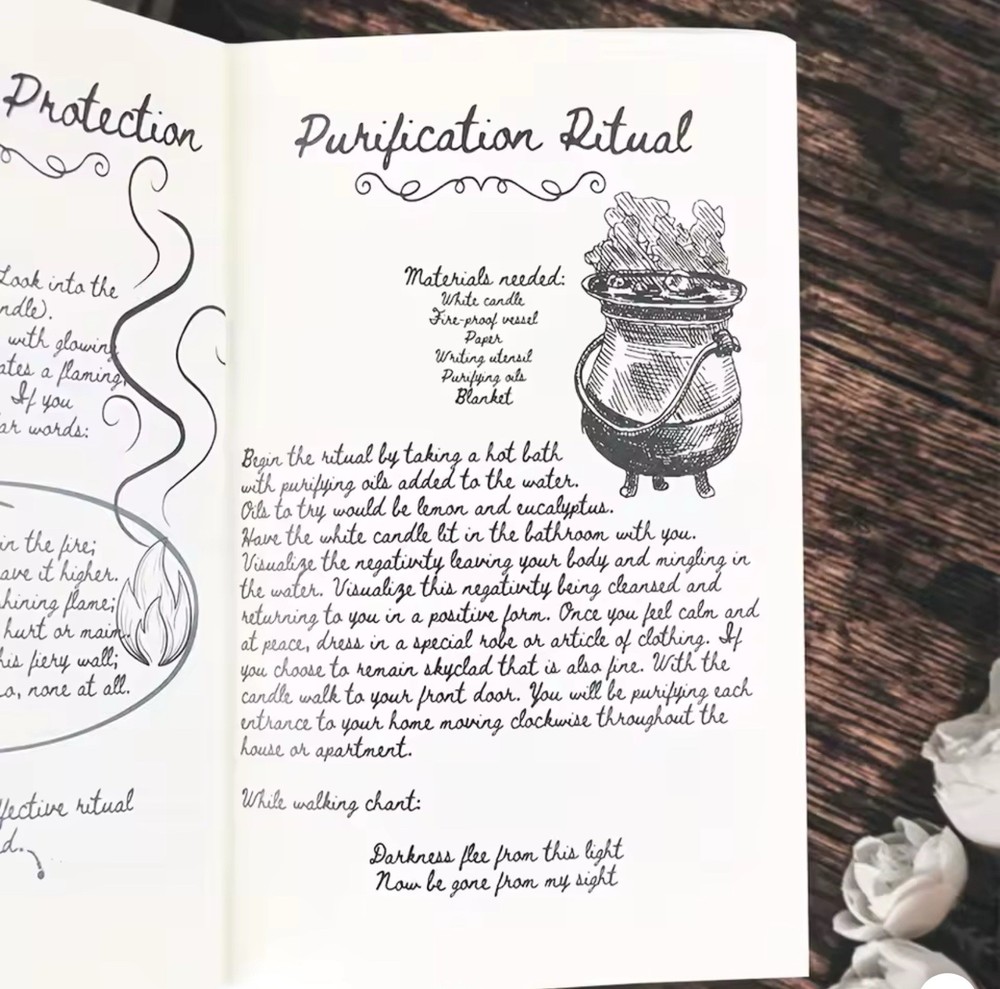 Protection
Look into the
ndle).
with glowing
ates a flaming
If you
ar words:
in the fire;
ave it higher.
hining flame;
hurt or maim.
his fiery wall;
o, none at all.
ffective ritual
d.
Purification Ritual
Materials needed:
White candle
Fire-proof vessel
Paper
Writing utensil
Purifying oils
Blanket
Begin the ritual by taking a hot bath
with purifying oils added to the water.
Oils to try would be lemon and eucalyptus.
Have the white candle lit in the bathroom with you.
Visualize the negativity leaving your body and mingling in
the water. Visualize this negativity being cleansed and
returning to you in a positive form. Once you feel calm and
at peace, dress in a special robe or article of clothing. If
you choose to remain skyclad that is also fine. With the
candle walk to your front door. You will be purifying each
entrance to your home moving clockwise throughout the
house or apartment.
While walking chant:
Darkness flee from this light
Now be gone from my sight